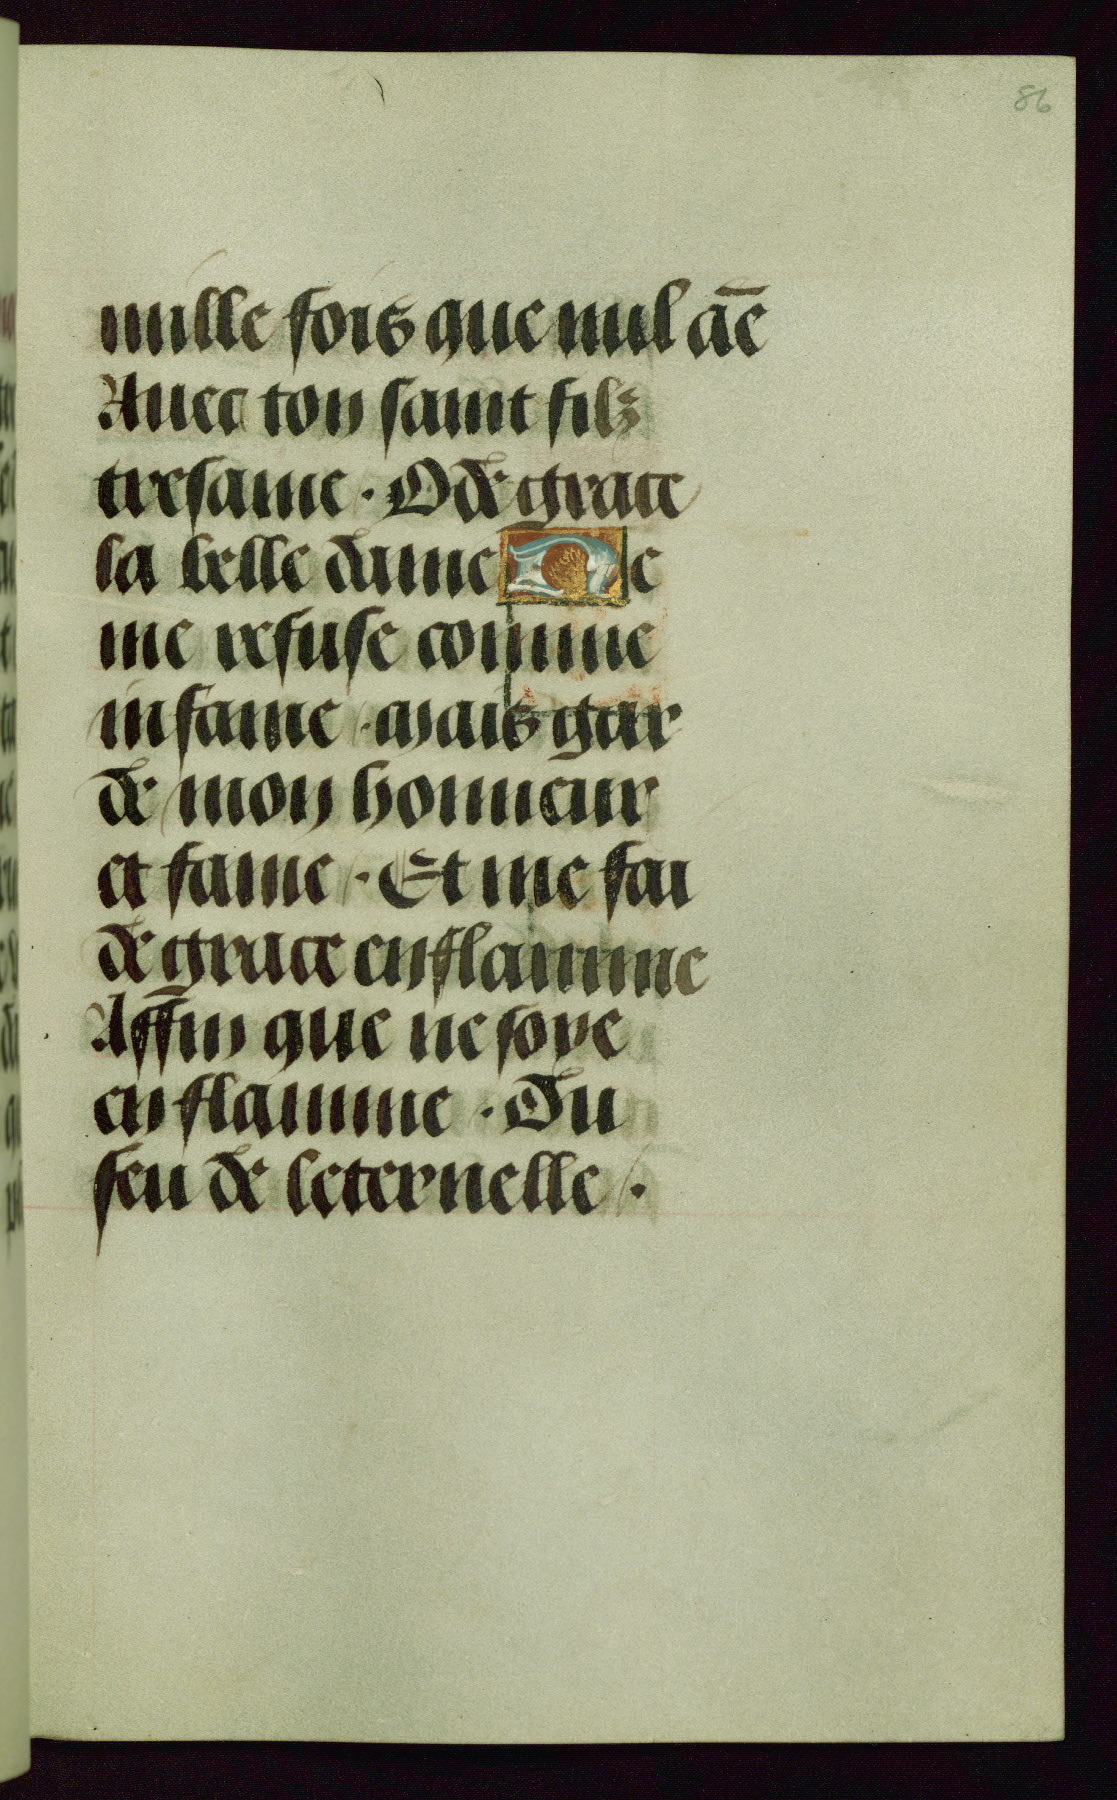 86
mille fois que nul āe
Auec ton saint filz
tresame · O de grace
la belle dame Ne
me refuse comme
infame · mais gar
de mon honneur
et fame · Et me fai
de grace enflamme
Affin que ne soye
enflamme · Du
feu de leternelle ·